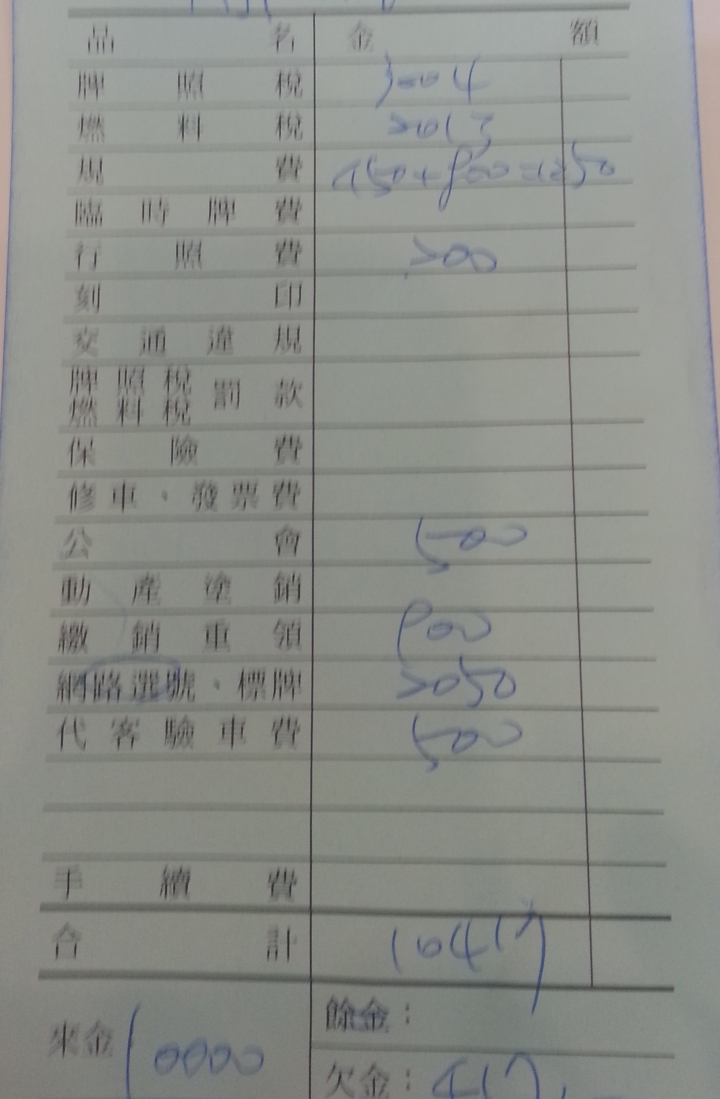 品名 金額
牌照稅 3004
燃料稅 2013
規費 450+800=1250
臨時牌費
行照費 200
刻印
交通違規
牌照稅
燃料稅 罰款
保險費
修車、發票費
公會 500
動產塗銷
繳銷重領 900
網路選號、標牌 2050
代客驗車費 500
手續費
合計 10417
來金 10000
餘金：
欠金：417